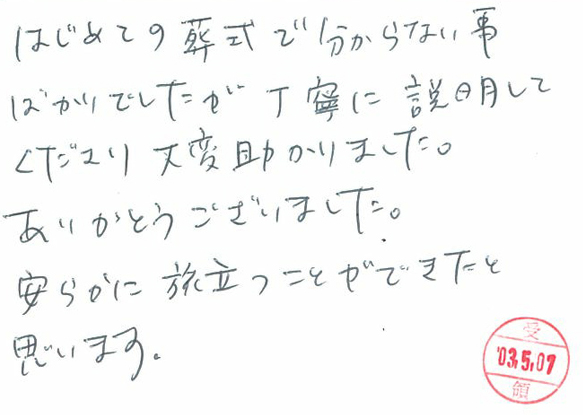 はじめての葬式で分からない事
ばかりでしたが丁寧に説明して
くださり大変助かりました。
ありがとうございました。
安らかに旅立つことができたと
思います。
受
'03.5.07
領